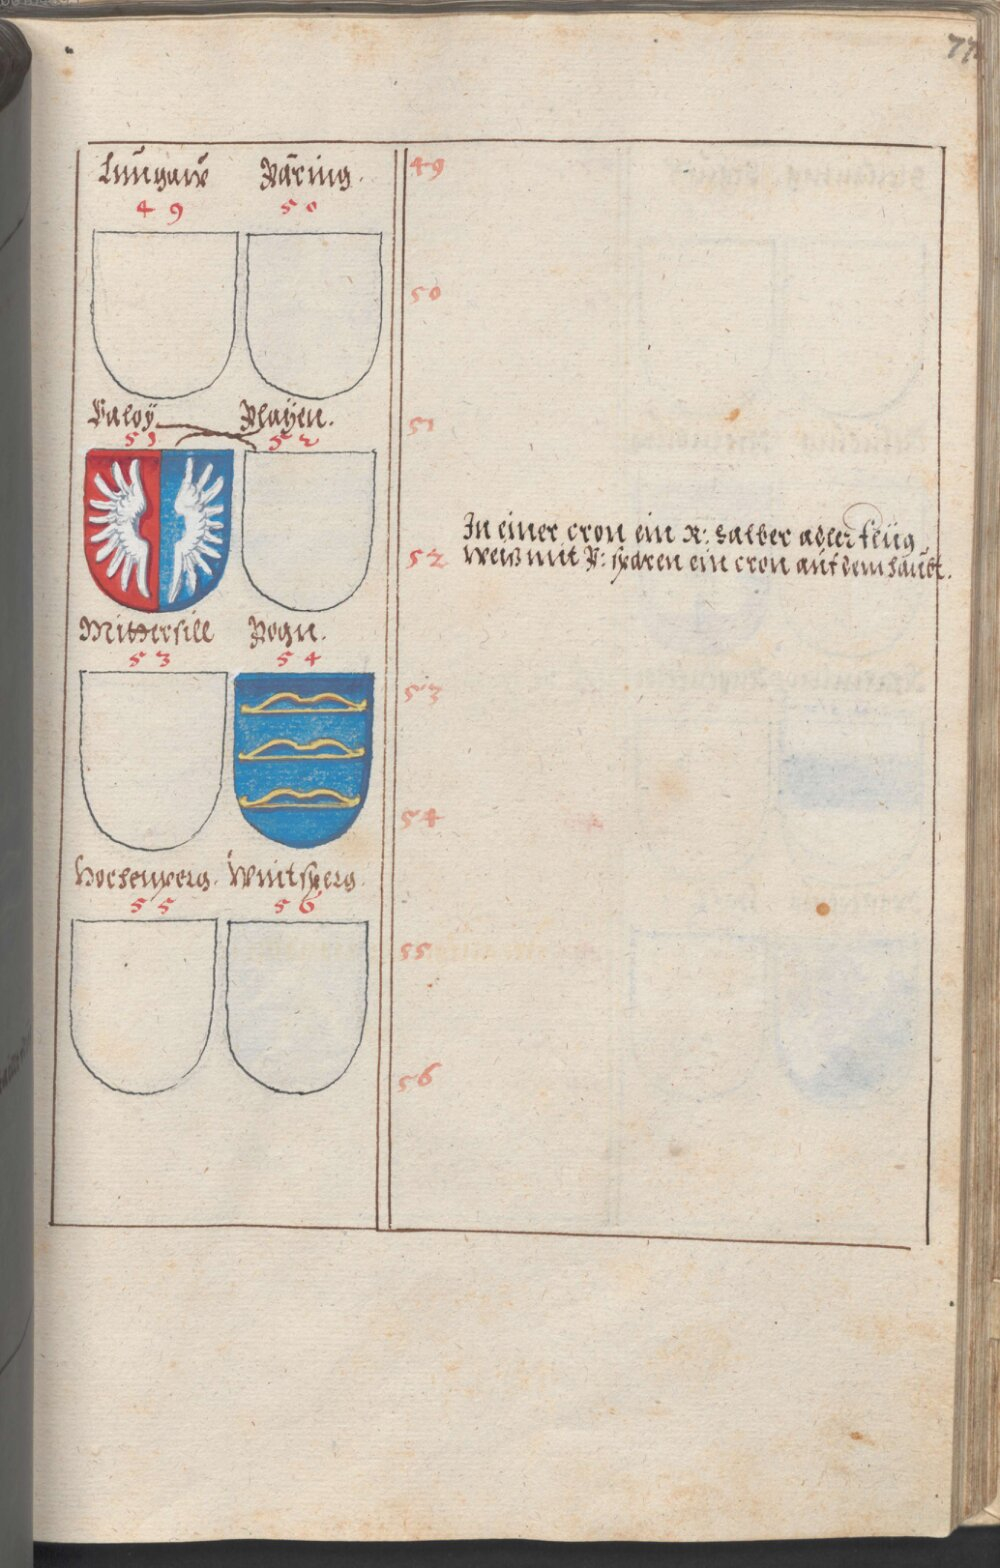 77
Lungaw Päring.
49 50
Valoy Playen.
51 52
Mittersill Pogn.
53 54
56
55
49
50
51
In einer cron ein R: halber adler flüg
52 weiß mit P: haren ein cron auf dem haubt.
53
54
55
56